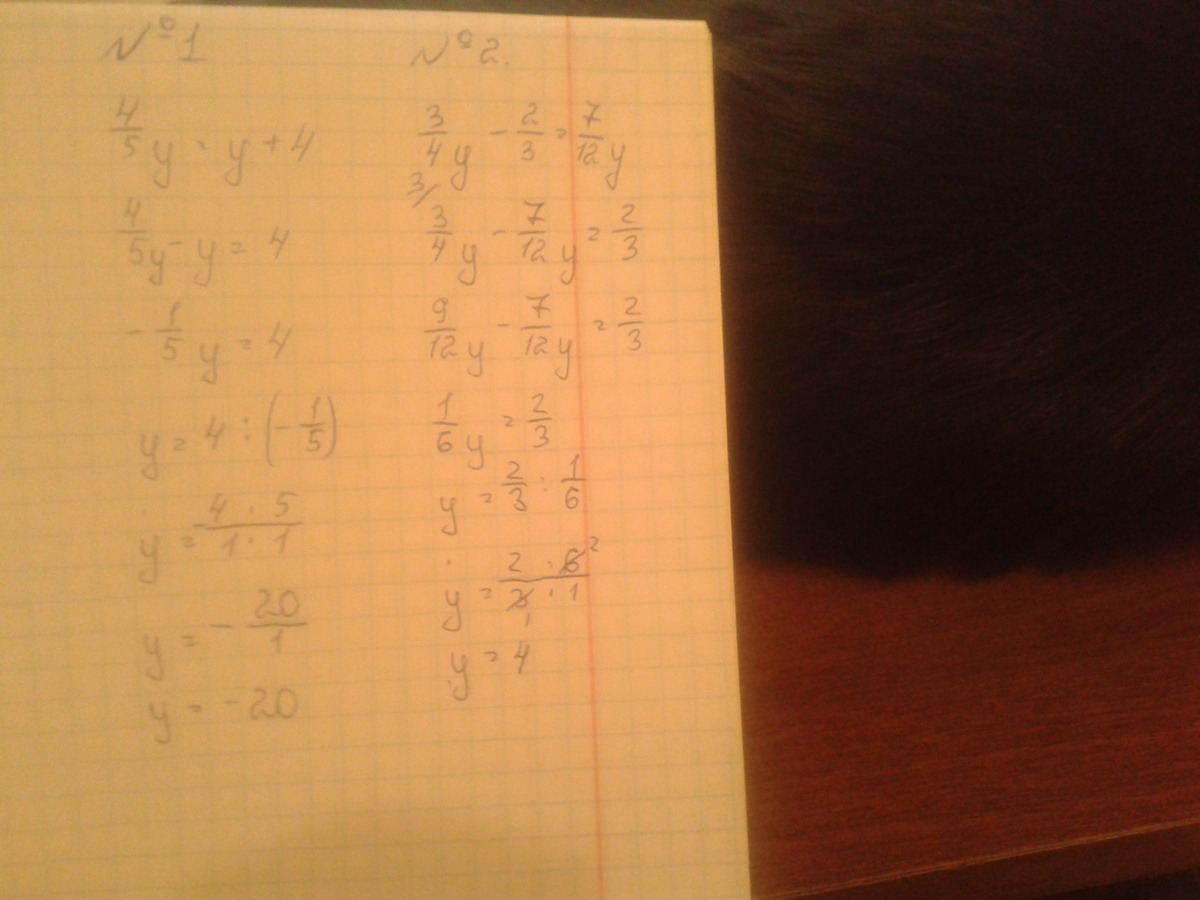 №1
4/5 y = y + 4
4/5 y - y = 4
- 1/5 y = 4
y = 4 : (- 1/5)
y = - 4 · 5 / 1 · 1
y = - 20/1
y = -20
№2.
3/4 y - 2/3 = 7/12 y
3/ 3/4 y - 7/12 y = 2/3
9/12 y - 7/12 y = 2/3
1/6 y = 2/3
y = 2/3 : 1/6
y = 2 · 6 2 / 3 1 · 1
y = 4